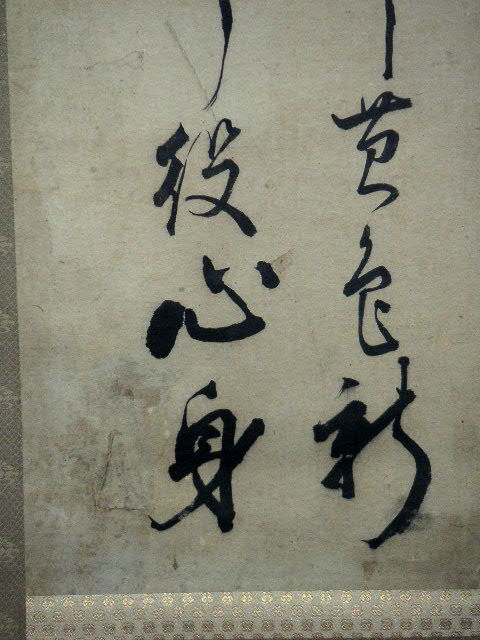 黄色新
役心身